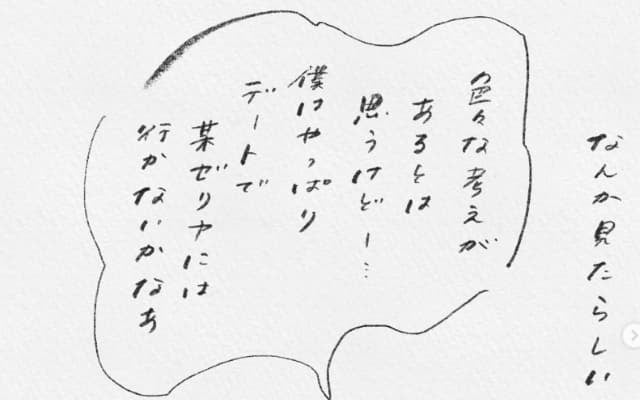 なんか見たらしい
色々な考えが
あるとは
思うけどー…
僕はやっぱり
デートで
某ゼリヤには
行かないかなぁ